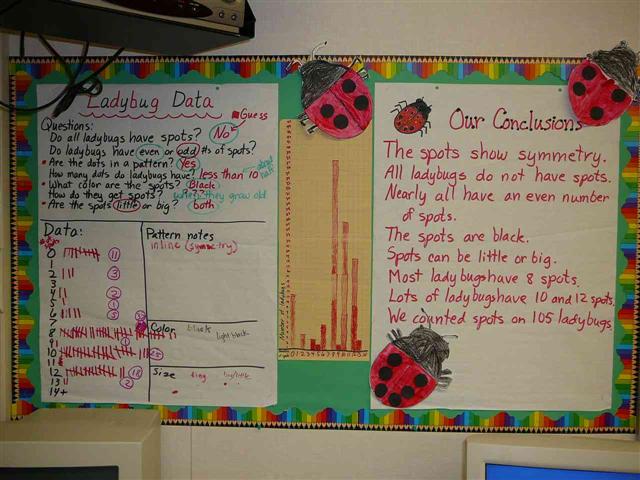 Ladybug Data
Guess
Questions:
Do all ladybugs have spots? No
Do ladybugs have even or odd # of spots?
Are the dots in a pattern? Yes
How many dots do ladybugs have? less than 10
What color are the spots? Black
How do they get spots? when they grow old
Are the spots little or big? both
Data:
0 11
1
2 3
3
4 2
5 1
6
7
8
9
10
11
12 18
13 2
14+
Pattern notes
in line (symmetry)
Color black
light black
Size tiny
Number of ladybugs
0 1 2 3 4 5 6 7 8 9 10 11 12 13
Our Conclusions
The spots show symmetry.
All ladybugs do not have spots.
Nearly all have an even number
of spots.
The spots are black.
Spots can be little or big.
Most ladybugs have 8 spots.
Lots of ladybugs have 10 and 12 spots.
We counted spots on 105 ladybugs.